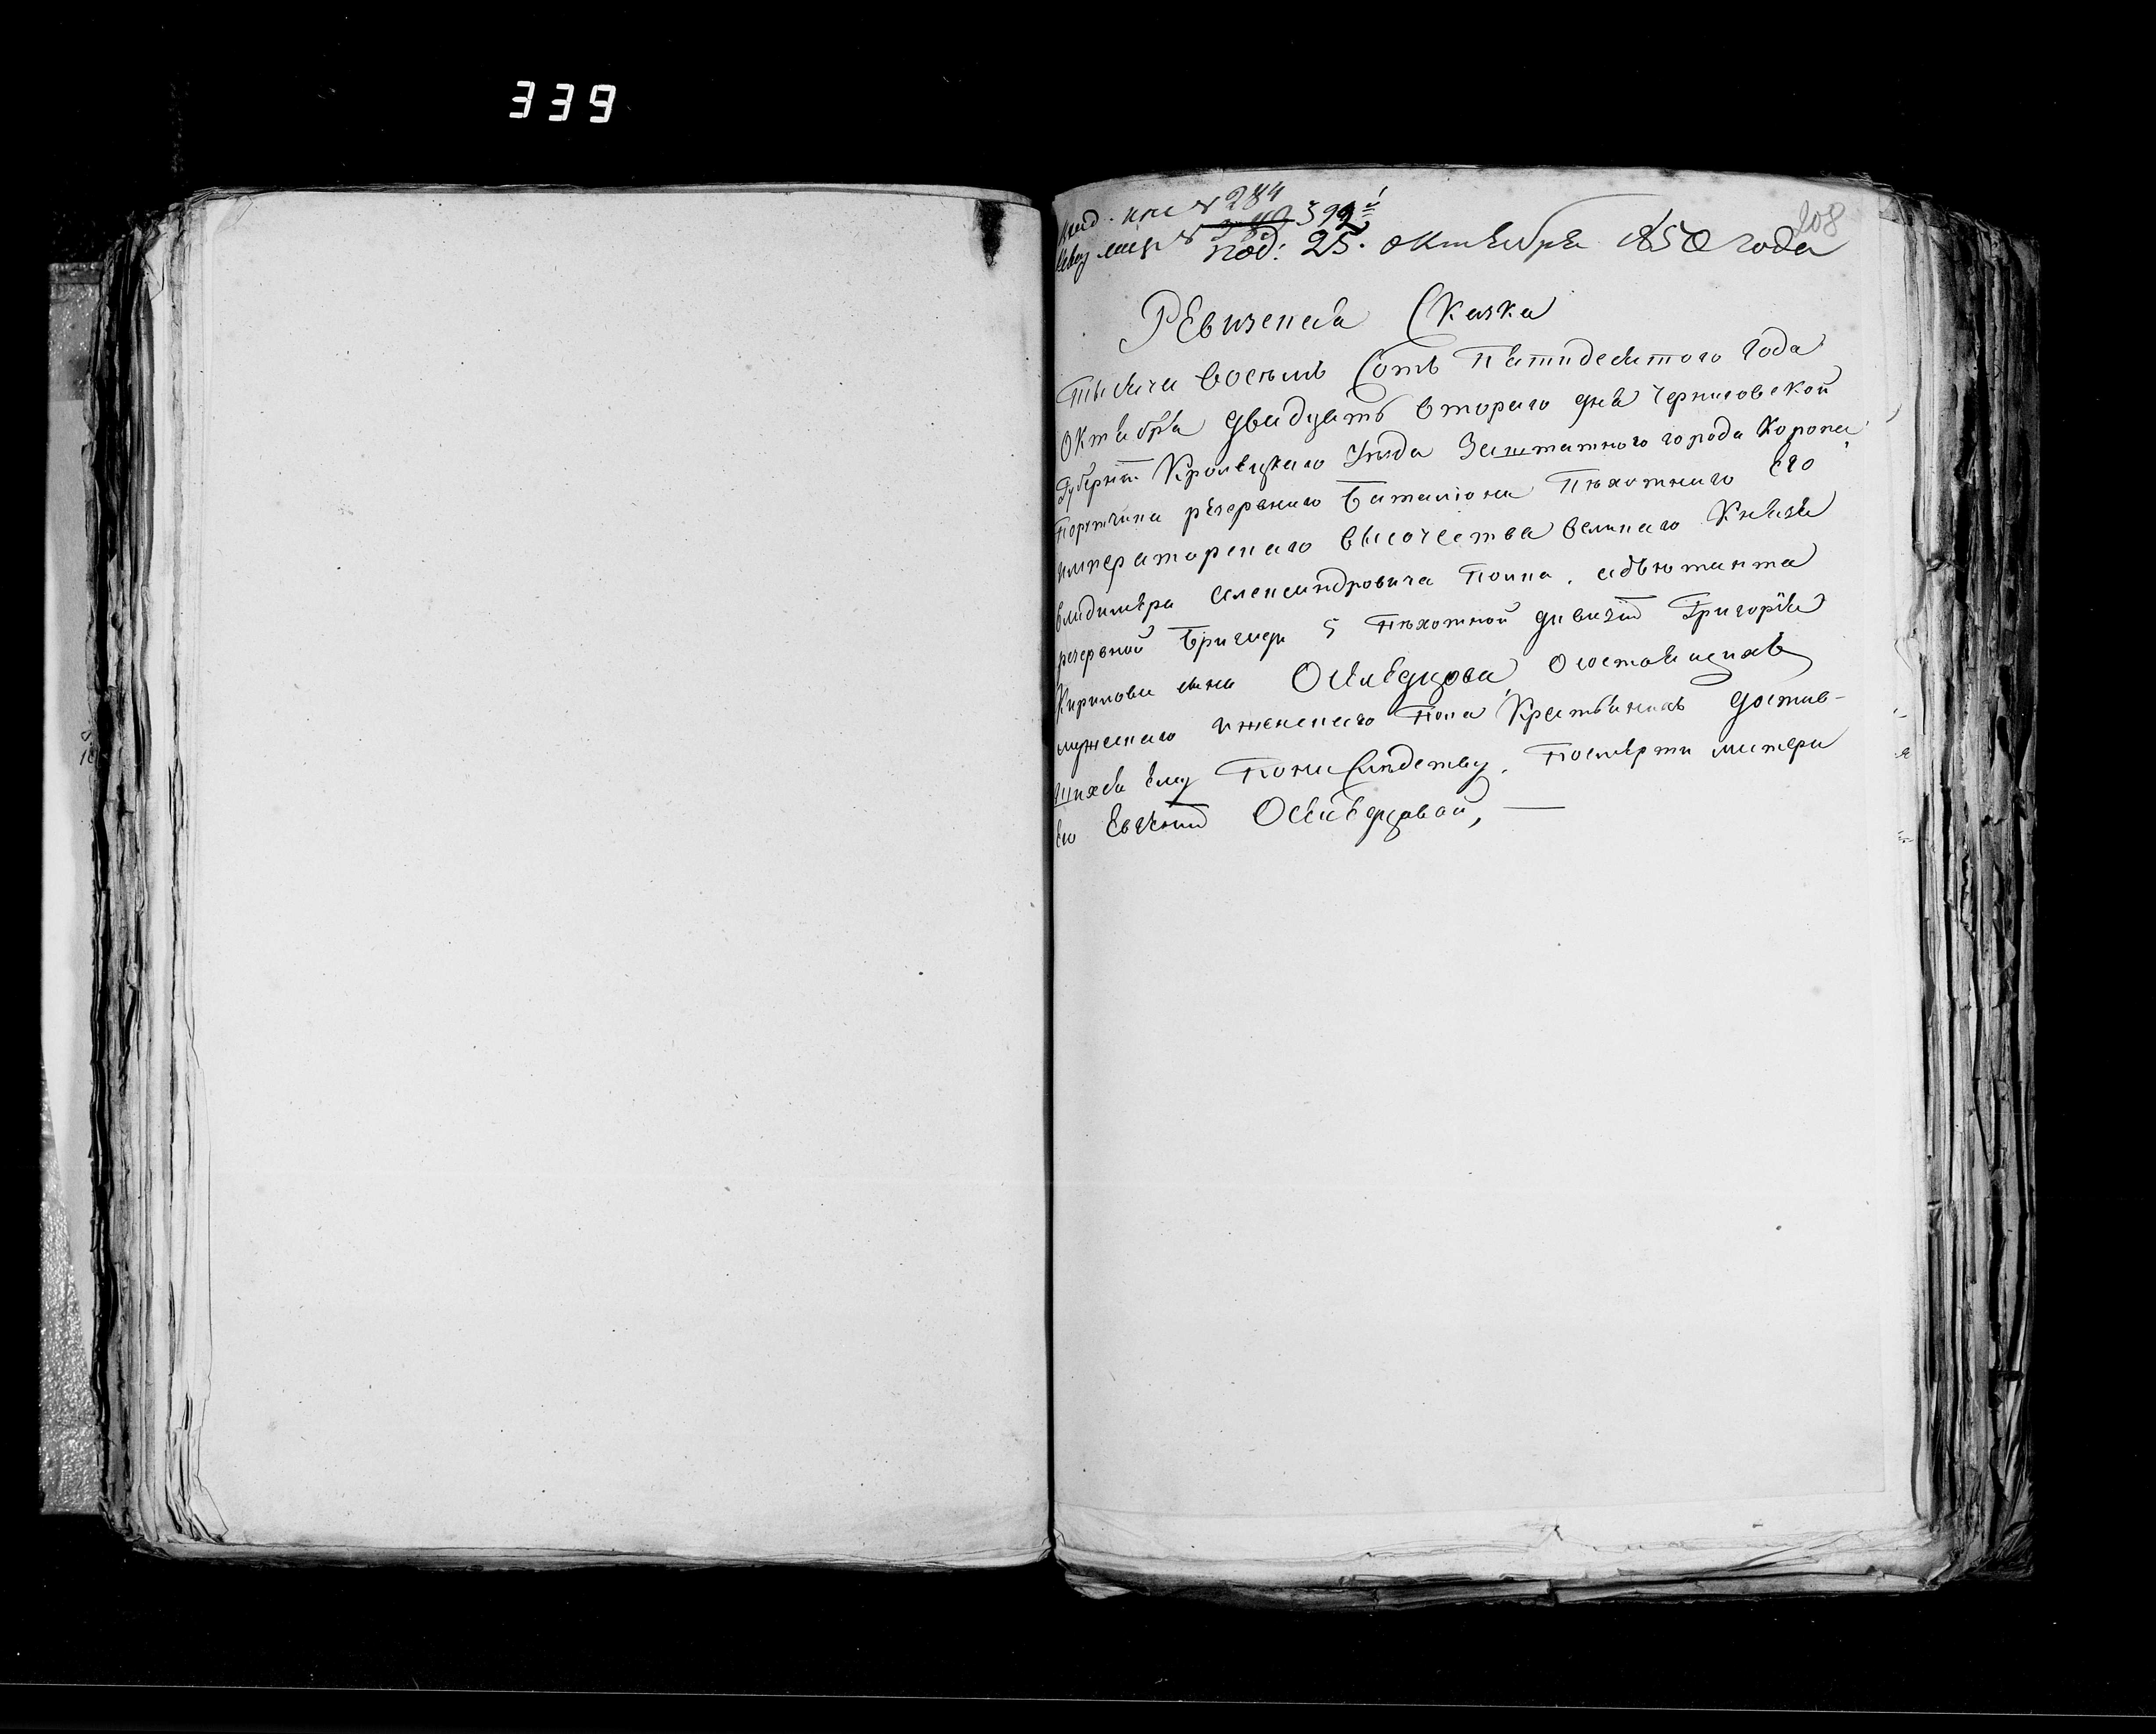 339
208
№ 284
№ 392й
под: 25. октября 1850 года
Ревизская Сказка
тысяча восемь Сотъ Пятидесятого Года
Октября двадцать второго дня Черниговской
Губернiи Кролевецкаго Уезда Заштатного города Коропа
Порутчика резервнаго Баталiона Пехотнаго Его
императорскаго высочества великаго Князя
владимера александровича Полка. адъютанта
резервной Бригады 5 пехотной дивизiи Григорiя
Кирилова сына Осведцова, Осостоящихъ
мужескаго иженскаго Пола Крестьянахъ достав-
шихся ему Понаследству. Посмерти матери
Его Евгенiи Осведцовой,